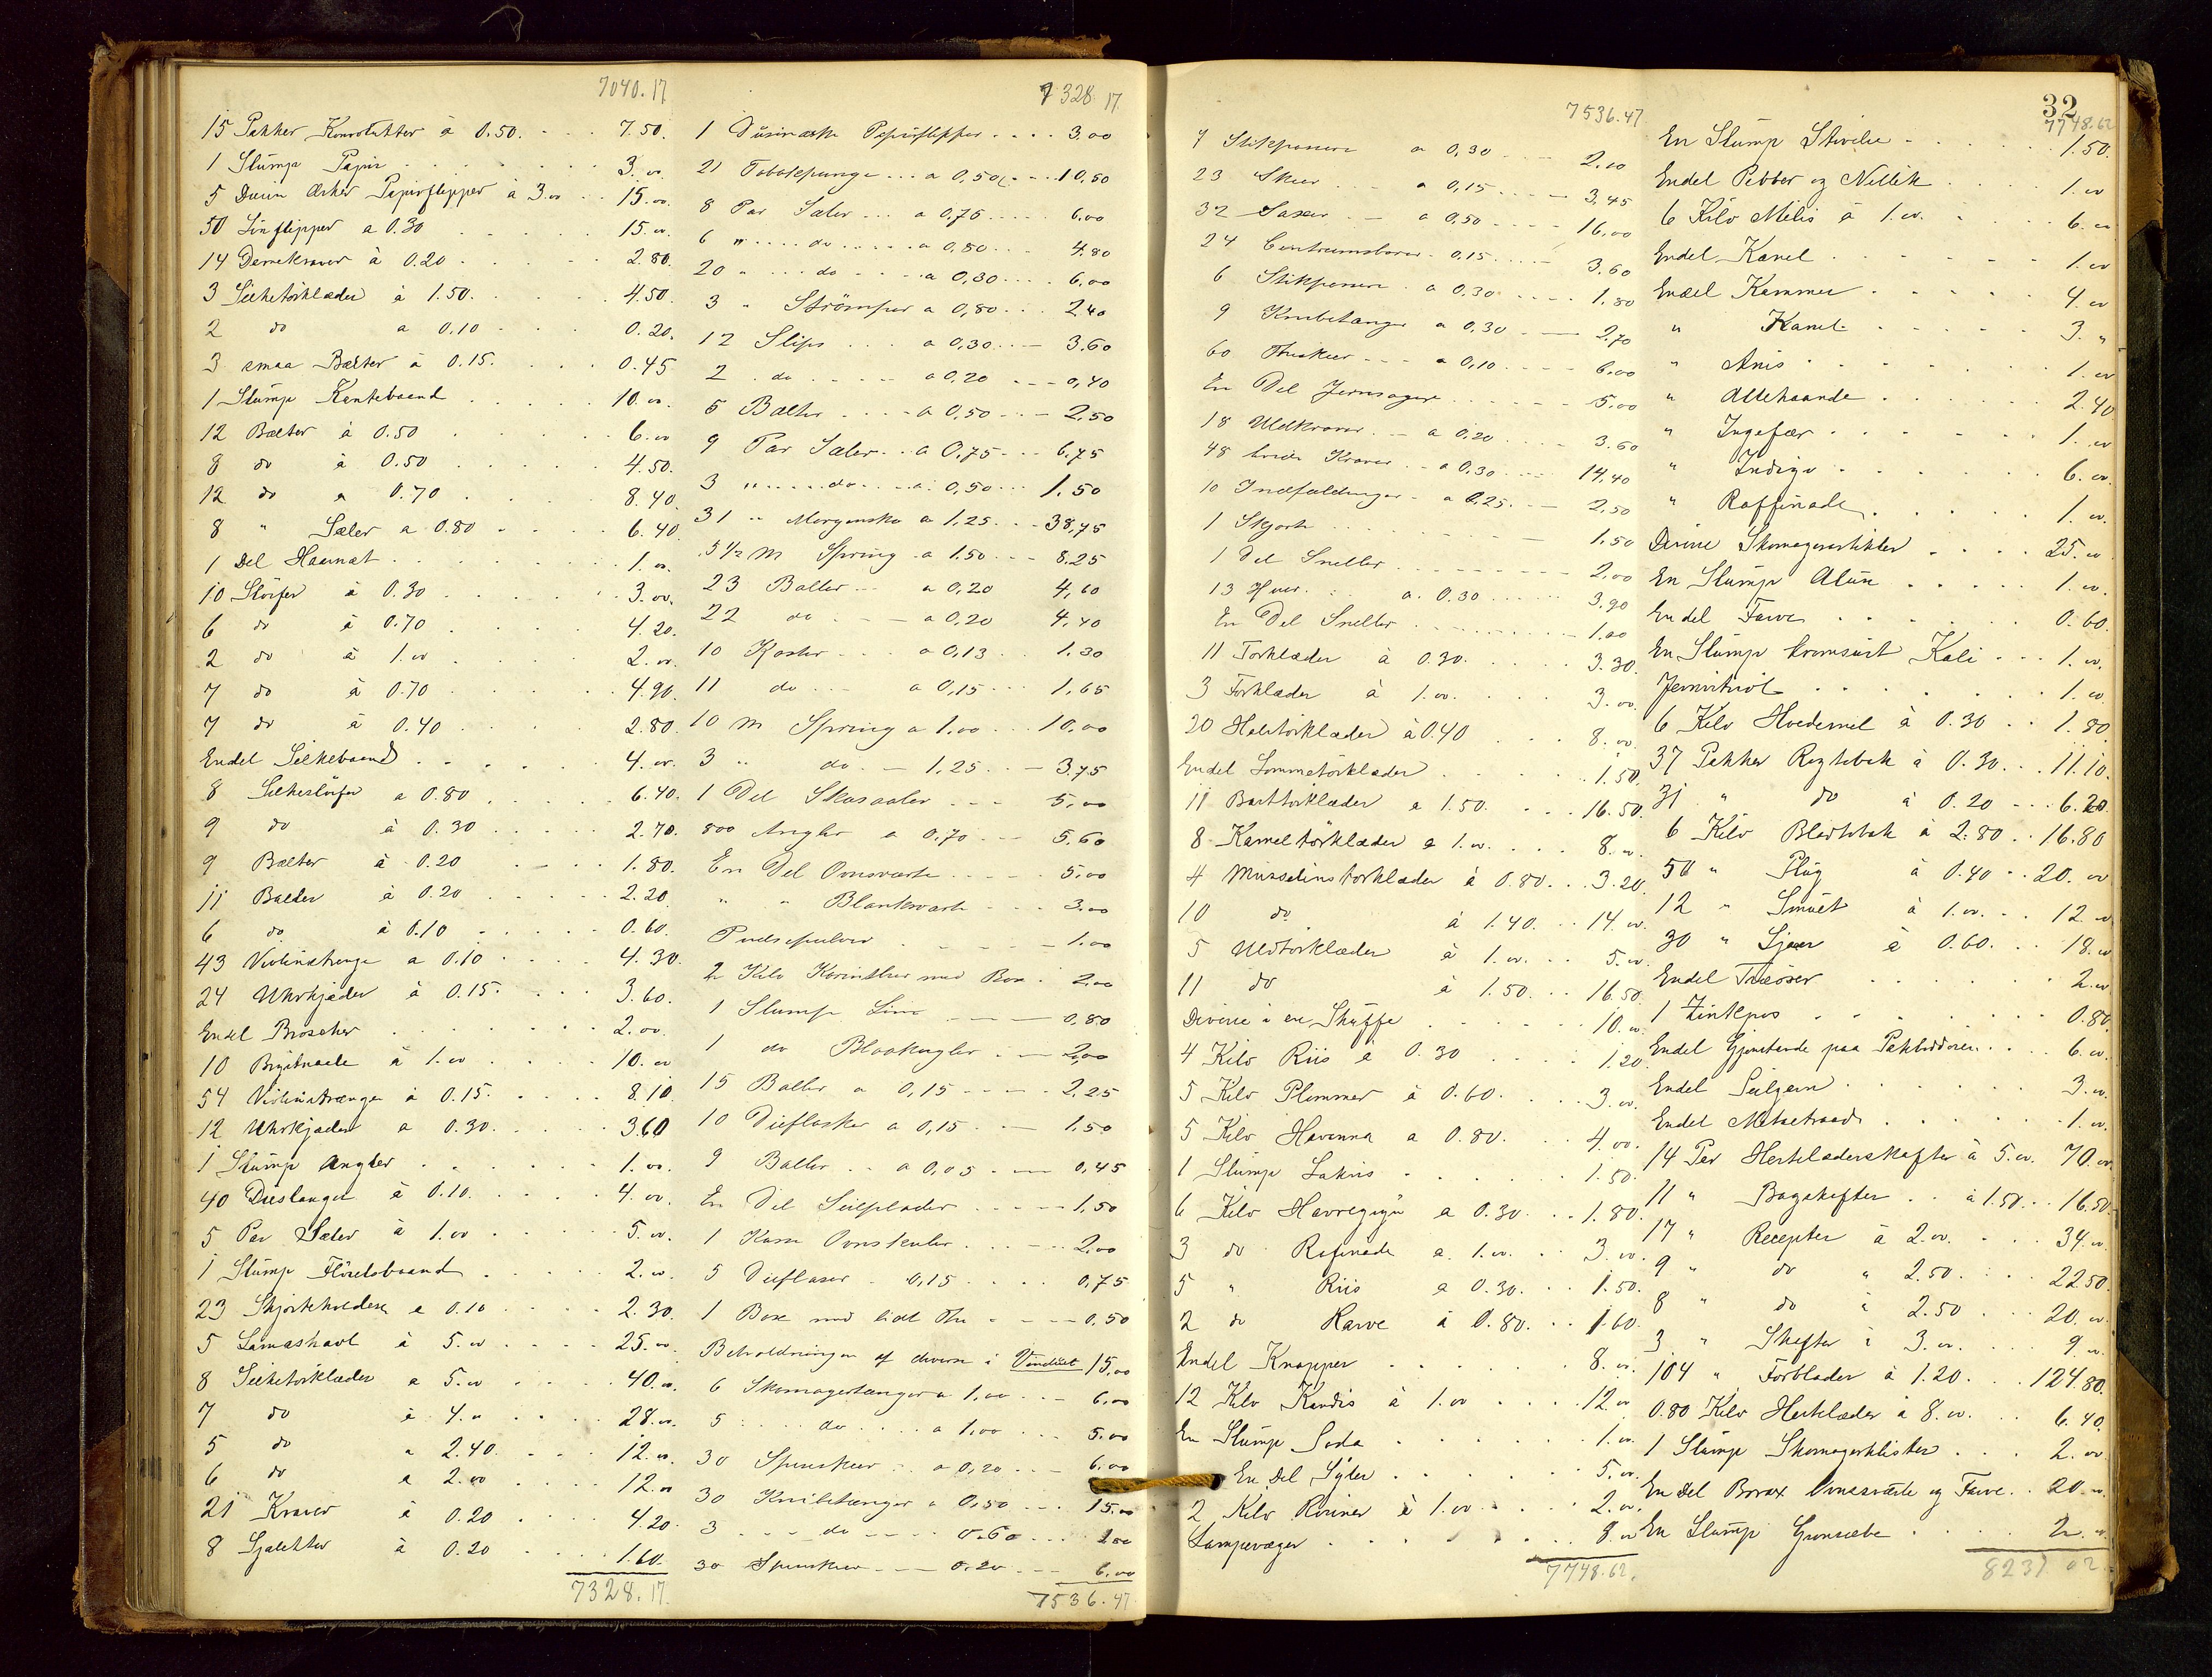 7040.17
15 Pakker Konvolutter à 0.50. 7.50.
1 Slump Papir 3.00
5 Dusin Æsker Papirflipper à 3.00 15.00.
50 Linflipper a 0.30 15.00.
14 Damekraver à 0.20 2.80.
3 Silketörklæder à 1.50. 4.50.
2 do a 0.10 0.20.
3 smaa Bælter à 0.15. 0.45
1 Slump Kantebaand 10.00.
12 Bælter à 0.50 6.00
9 do à 0.50 4.50.
12 do a 0.70 8.40.
8 " Sæler a 0.80 6.40.
1 Del Haarnæt 1.00.
10 Slöifer à 0.30 3.00.
6 do à 0.70 4.20.
2 do à 1.00 2.00.
7 do à 0.70 4.90.
7 do à 0.40 2.80.
Endel Silkebaand 4.00.
8 Silkeslöifer a 0.80 6.40.
9 do à 0.30 2.70.
9 Bælter à 0.20 1.80.
11 Bælter à 0.20 2.20.
6 do à 0.10 0.60.
43 Violinstrenge a 0.10 4.30.
24 Uhrkjæder à 0.15. 3.60.
Endel Broscher 2.00.
10 Brystnaale à 1.00 10.00
54 Violinstrænge à 0.15. 8.10
12 Uhrkjæder a 0.30. 3.60
1 Slump Angler 1.00.
40 Dieslanger à 0.10. 4.00.
5 Par Sæler à 1.00 5.00.
1 Slump Flöielsbaand 2.00
23 Skjorteholdere a 0.10 2.30.
5 Lamashavl à 5.00 25.00.
8 Silketörklæder a 5.00 40.00.
7 do à 4.00 28.00.
5 do a 2.40. 12.00.
6 do a 2.00 12.00
21 Kraver à 0.20 4.20.
8 Sjaletter à 0.20 1.60.
7328.17.
7328.17
1 Dusinæske Papirflipper 3.00
21 Tobakspunge a 0,50 10,50
8 Par Sæler a 0,75 6,00
6 " do a 0,80 4,80
20 " do a 0,30 6,00
3 " Strömper a 0,80 2,40
12 Slips a 0,30 3,60
2 do a 0,20 0,40
5 Bælter a 0,50 2,50
9 Par Sæler a 0,75 6,75
3 " do a 0,50 1,50
31 " Morgensko a 1,25 38,75
5 1/2 m Spring a 1.50 8,25
23 Baller a 0,20 4,60
22 do a 0,20 4,40
10 Koster a 0,13 1,30
11 do a 0,15 1,65
10 m Spring a 1,00 10,00
3 " do 1,25 3,75
1 Del Skosaaler 5,00
800 Angler a 0,70 5,60
En Del Ovnsværte 5,00
" " Blanksværte 3,00
Pudsepulver 1,00
2 Kilo Korinther med Box 2,00
1 Slump Lim 0,80
1 do Blaakugler 2,00
15 Baller a 0,15 2,25
10 Dieflasker a 0,15 1,50
9 Baller a 0,05 0,45
En Del Seilplader 1,50
1 Kasse Ovnskuler 2,00
5 Dieflaser 0,15 0,75
1 Box med lidt The 0,50
Beholdningen af diverse i Vinduet 15,00
6 Skomagertænger a 1,00 6,00
5 do a 1,00 5,00
30 Spiseskeer a 0,20 6,00
30 Knibetænger a 0,50 15,00
3 do 0.60 1 80
30 Spiseskeer 0.20 6,00
7536.47
7536.47
7 Stikpasser a 0,30 2,10
23 Skeer a 0,15 3,45
32 Saxer a 0,50 16,00
24 Centrumsborer 0,15 3,60
6 Stikpassere a 0,30 1,80
9 Knibetænger a 0,30 2,70
60 Theskeer a 0,10 6,00
En Del Jernsager 5,00
18 Uldkraver a 0,20 3,60
48 hvide Kraver a 0,30 14,40
10 Indfældninger a 0,25 2,50
1 Skjorte 1.50
1 Del Sneller 2,00
13 Huer a. 0.30 3,90
En Del Sneller 1,00
11 Törklæder à 0.30. 3.30
3 Forklæder à 1.00. 3.00.
20 Halstörklæder à 0.40 8.00.
Endel Lommetörklæder 1.50.
11 Basttörklæder a 1.50. 16.50.
8 Kameltörklæder a 1.00. 8.00.
4 Musselinstörklæder à 0.80. 3.20.
10 do à 1.40. 14.00.
5 Uldtörklæder à 1.00. 5.00.
11 do à 1.50. 16.50.
Diverse i en Skuffe 10.00
4 Kilo Riis à 0.30 1.20
5 Kilo Plommer à 0.60. 3.00.
5 Kilo Havanna a 0.80. 4.00.
1 Slump Lakris 1.50.
6 Kilo Havregryn a 0.30. 1.80.
3 do Rafinade a 1.00. 3.00.
5 " Riis a 0.30. 1.50.
2 do Karve à 0.80. 1.60.
Endel Knapper 8.00.
12 Kilo Kandis à 1.00 12.00
En Slump Soda 1.00.
En Del Syler 5.00.
2 Kilo Rosiner à 1.00 2.00.
Lampevæger 8.00
7748.62.
32
7748.62
En Slump Stivelse 1.50.
Endel Pebber og Nellik 1.00
6 Kilo Melis à 1.00. 6.00
Endel Kanel 1.00
Endel Kammer 4.00
" Kanel 3. "
" Anis 1.00
" Allehaande 2.40
" Ingefær 1.00
" Indigo 6.00.
" Raffinade 1.00.
Diverse Skomagerartikler 25.00
En Slump Alun 1.00.
Endel Farve 0.60.
En Slump kromsurt Kali 1.00.
Jernvitriol 1.00
6 Kilo Hvedemel à 0.30 1.80
37 Pakker Rögtobak à 0.30. 11.10.
31 " do à 0.20 6.20
6 Kilo Bladtobak à 2.80 16.80
50 " Plug à 0.40 20.00
12 " Smuet à 1.00. 12.00
30 " Sjaer à 0.60. 18.00
Endel Træöser 2.00
1 Zinkpøs 0.80.
Endel Gjenstande paa Pakboderne 6.00.
Endel Seilgarn 3.00.
Endel Metaltraad 1.00.
14 Par Hestelæderskafter à 5.00. 70.00
11 " Bagskafter à 1.50. 16.50.
17 " Recepter à 2.00. 34.00
9 " do " 2.50. 22.50
8 " do à 2.50 20.00
3 " Skafter à 3.00. 9.00
104 " Forblader à 1.20. 124.80.
0.80 Kilo Hestelæder à 8.00. 6.40
1 Slump Skomagerklister 2.00
En Del Borax Ovnsværte og Farve 20.00.
En Slump Grønsæbe 2.00
8237 02